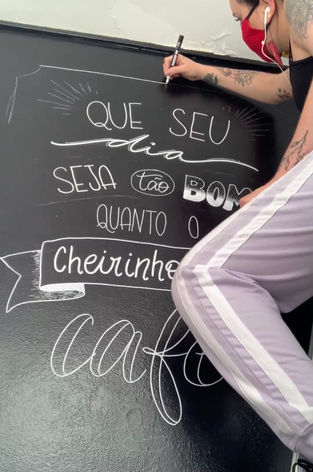 QUE SEU
dia
SEJA tão BOM
QUANTO O
Cheirinho
café